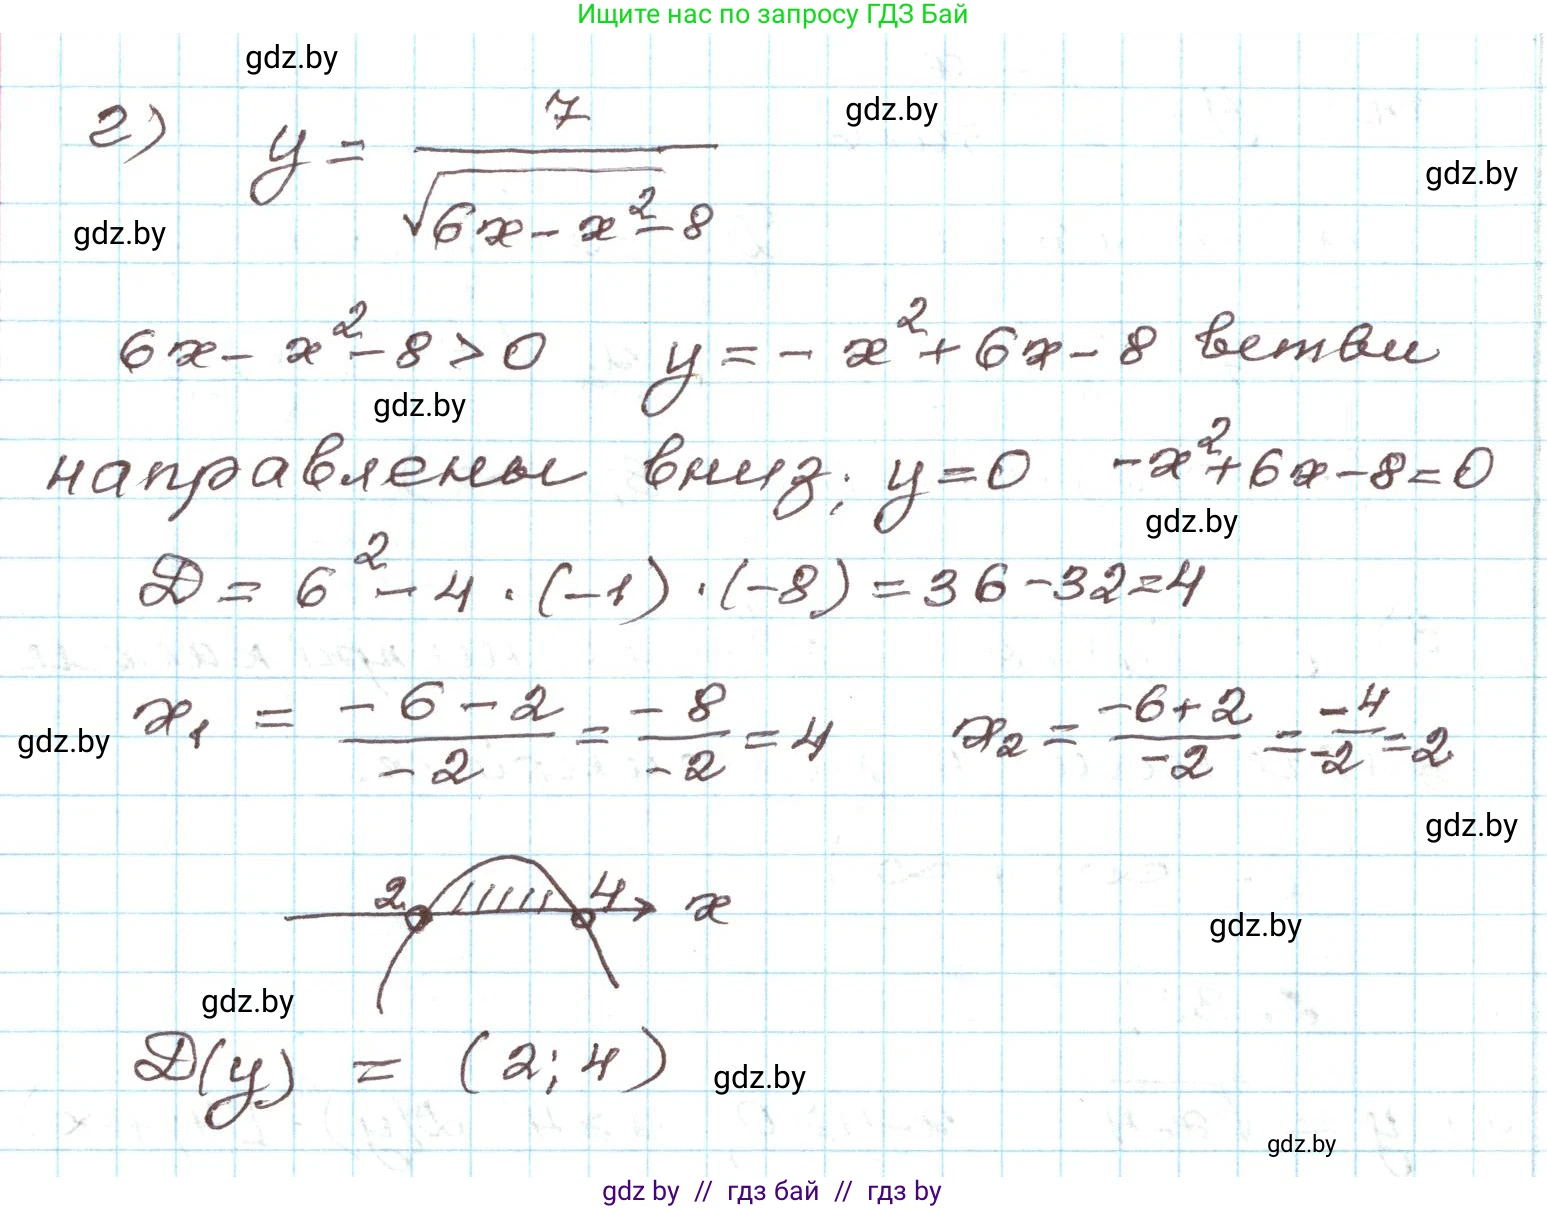 Ищите нас по запросу ГДЗ Бай
gdz.by
gdz.by
2) y = 7 / √(6x - x² - 8)
gdz.by
gdz.by
6x - x² - 8 > 0 y = - x² + 6x - 8 ветви
gdz.by
направлены вниз; y = 0 -x² + 6x - 8 = 0
gdz.by
D = 6² - 4 · (-1) · (-8) = 36 - 32 = 4
x₁ = (-6 - 2)/(-2) = (-8)/(-2) = 4 x₂ = (-6 + 2)/(-2) = (-4)/(-2) = 2
gdz.by
gdz.by
2 4 x
gdz.by
gdz.by
D(y) = (2; 4)
gdz.by
gdz.by
gdz by // гдз бай // гдз by